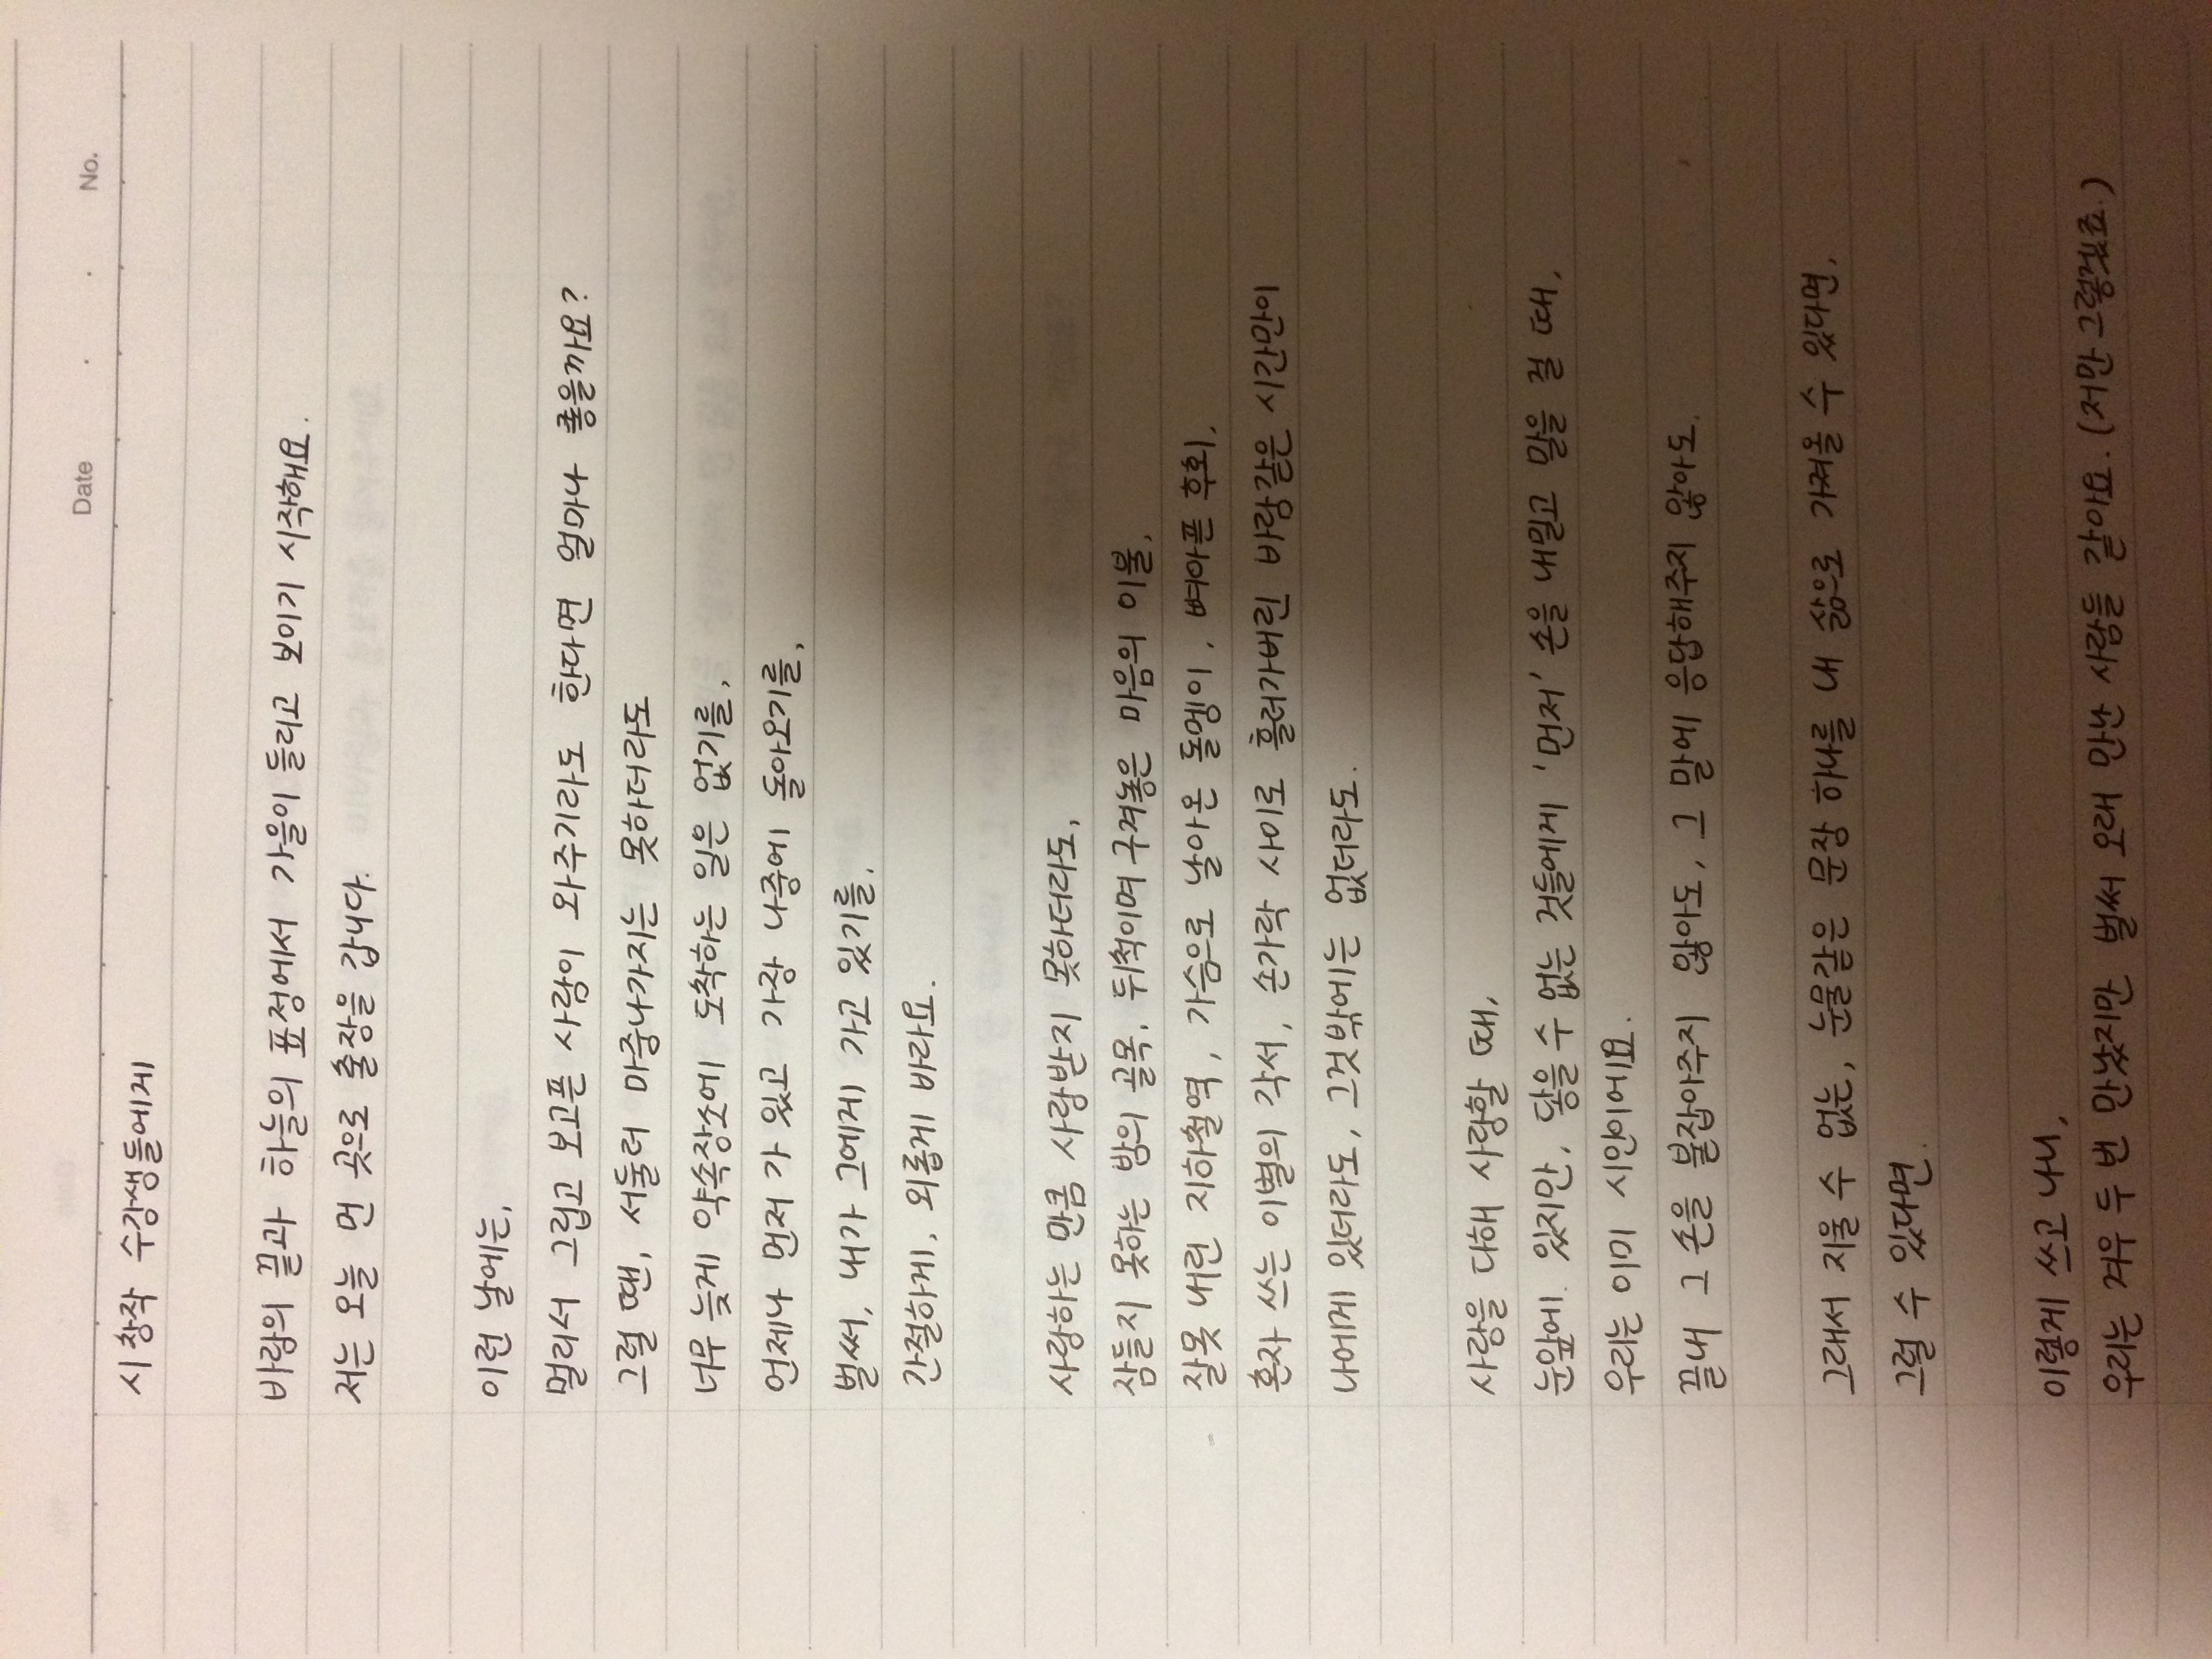 Date . . No.
시 창작 수강생들에게
바람의 끝과 하늘의 표정에서 가을이 들리고 보이기 시작해요.
저는 오늘 먼 곳으로 출장을 갑니다.
이런 날에는,
멀리서 그립고 보고픈 사람이 와주기라도 한다면 얼마나 좋을까요?
그럴 땐, 서둘러 마중나가지는 못하더라도
너무 늦게 약속장소에 도착하는 일은 없기를,
언제나 먼저 가 있고 가장 나중에 돌아오기를,
벌써, 내가 그에게 가고 있기를,
간절하게, 외롭게 바라요.
사랑하는 만큼 사랑받지 못하더라도,
잠들지 못하는 밤의 골목, 뒤척이며 구겨놓은 마음의 이불,
잘못 내린 지하철역, 가슴으로 날아온 돌멩이, 뼈아픈 후회,
혼자 쓰는 이별의 각서, 손가락 사이로 흘러가버린 바람같은 시간만이
나에게 있더라도, 그것밖에는 없더라도.
사랑을 다해 사랑할 때,
눈앞에 있지만, 닿을 수 없는 것들에게 '먼저' 손을 내밀고 말을 걸 때,
우리는 이미 시인이에요.
끝내 그 손을 붙잡아주지 않아도, 그 말에 응답해주지 않아도.
그래서 지울 수 없는, 눈물같은 문장 하나를 내 삶으로 가져올 수 있다면,
그럴 수 있다면.
이렇게 쓰고 나니,
우리는 겨우 두 번 만났지만 벌써 오래 만난 사람들 같아요. (저만 그렇겠죠.)